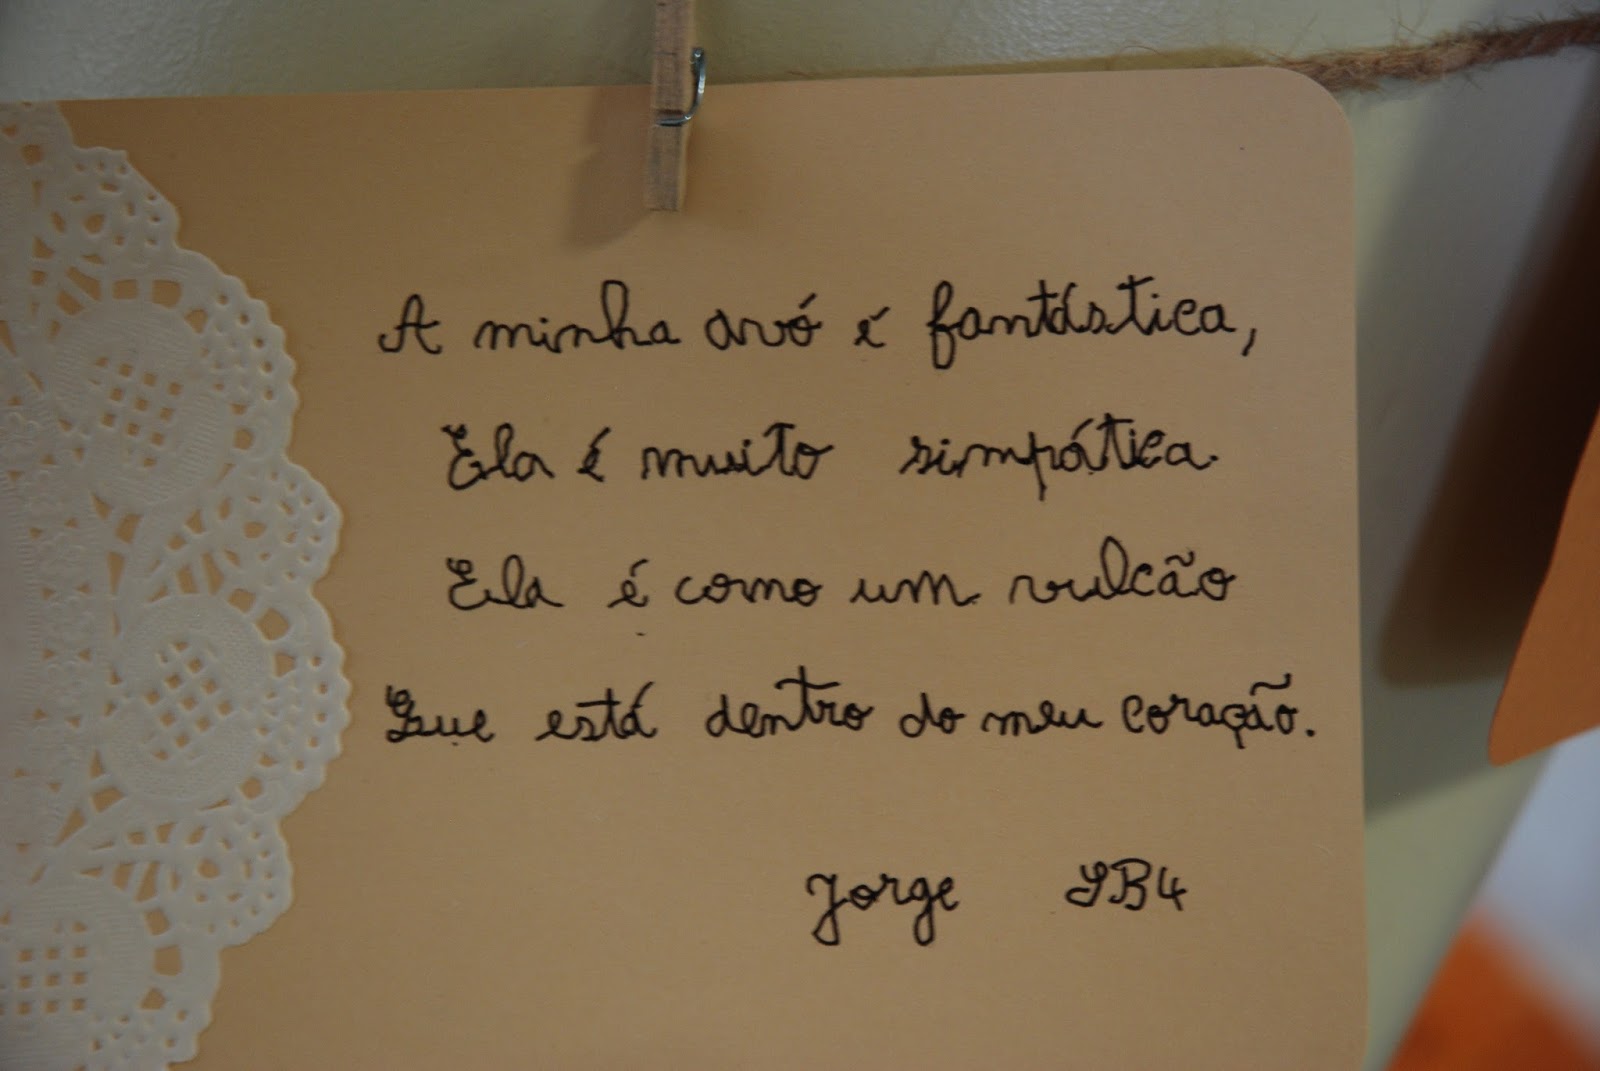 A minha avó é fantástica,
Ela é muito simpática.
Ela é como um vulcão
Que está dentro do meu coração.
Jorge SB4